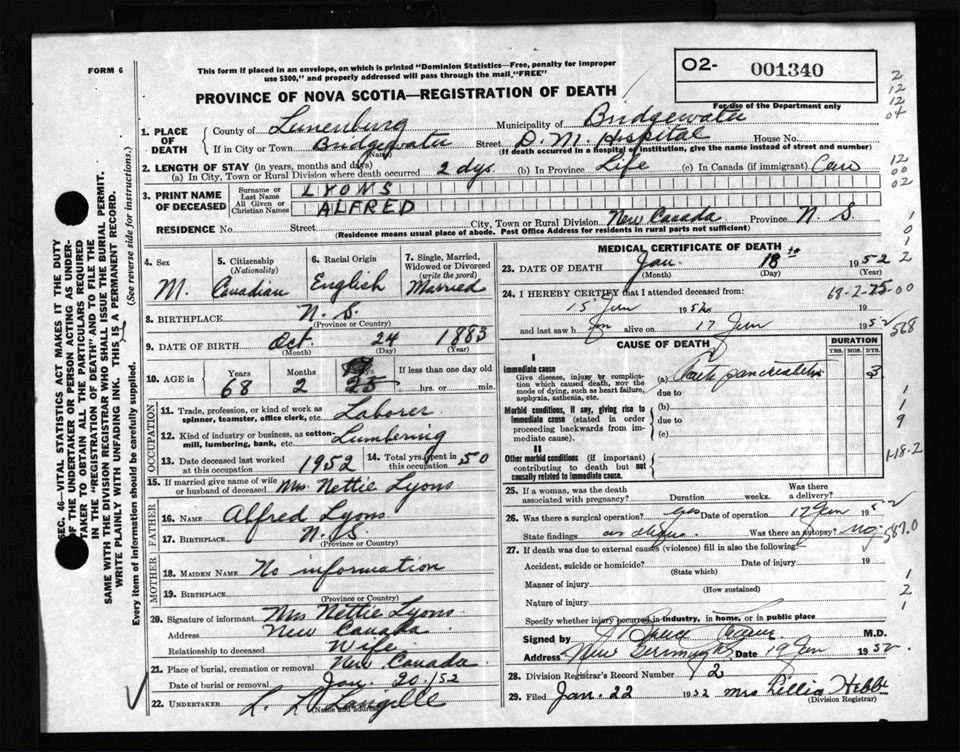 FORM 6
This form if placed in an envelope, on which is printed "Dominion Statistics—Free, penalty for improper
use $300," and properly addressed will pass through the mail "FREE"
O2- 001340
For use of the Department only
PROVINCE OF NOVA SCOTIA—REGISTRATION OF DEATH
1. PLACE OF DEATH
County of Lunenburg Municipality of Bridgewater
If in City or Town Bridgewater Street D. M. Hospital House No.
(Name) (If death occurred in a hospital or institution, give the name instead of street and number)
2. LENGTH OF STAY (in years, months and days)
(a) In City, Town or Rural Division where death occurred 2 dys. (b) In Province Life (c) In Canada (if immigrant)
3. PRINT NAME OF DECEASED
Surname or Last Name LYONS
All Given or Christian Names ALFRED
RESIDENCE No. Street City, Town or Rural Division New Canada Province N. S.
(Residence means usual place of abode. Post Office Address for residents in rural parts not sufficient)
4. Sex M.
5. Citizenship (Nationality) Canadian
6. Racial Origin English
7. Single, Married, Widowed or Divorced (write the word) Married
8. BIRTHPLACE N. S.
(Province or Country)
9. DATE OF BIRTH Oct. 24 1883
(Month) (Day) (Year)
10. AGE in Years Months Days If less than one day old
68 2 25 hrs. or min.
OCCUPATION
11. Trade, profession, or kind of work as spinner, teamster, office clerk, etc. Laborer
12. Kind of industry or business, as cotton-mill, lumbering, bank, etc. Lumbering
13. Date deceased last worked at this occupation 1952
14. Total yrs. spent in this occupation 50
15. If married give name of wife or husband of deceased Mrs. Nettie Lyons
FATHER
16. NAME Alfred Lyons
17. BIRTHPLACE N. S.
(Province or Country)
MOTHER
18. MAIDEN NAME No information
19. BIRTHPLACE
(Province or Country)
20. Signature of informant Mrs Nettie Lyons
Address New Canada
Relationship to deceased Wife
21. Place of burial, cremation or removal New Canada
Date of burial or removal Jan. 20/52
22. UNDERTAKER L. Langille
(Name and address)
MEDICAL CERTIFICATE OF DEATH
23. DATE OF DEATH Jan. 18th 1952
(Month) (Day) (Year)
24. I HEREBY CERTIFY that I attended deceased from:
15 Jan 1952 to 19
and last saw h alive on 17 Jan 1952
CAUSE OF DEATH
DURATION
YRS. MOS. DYS.
I
Immediate cause
Give disease, injury or complication which caused death, NOT the mode of dying, such as heart failure, asphyxia, asthenia, etc.
(a) Acute pancreatitis 3
due to
Morbid conditions, if any, giving rise to immediate cause (stated in order proceeding backwards from immediate cause).
(b)
due to
(c)
II
Other morbid conditions (if important) contributing to death but not causally related to immediate cause.
25. If a woman, was the death associated with pregnancy? Duration weeks. Was there a delivery?
26. Was there a surgical operation? yes Date of operation 17 Jan 1952
State findings as above. Was there an autopsy? no
27. If death was due to external causes (violence) fill in also the following:
Accident, suicide or homicide? Date of injury 19
(State which)
Manner of injury
(How sustained)
Nature of injury
Specify whether injury occurred in industry, in home, or in public place
Signed by M.D.
Address New Germany Date 19 Jan 1952.
28. Division Registrar's Record Number 2
29. Filed Jan. 22 1952 Mrs Lillia Hebb
(Division Registrar)
SEC. 46—VITAL STATISTICS ACT MAKES IT THE DUTY
OF THE UNDERTAKER OR PERSON ACTING AS UNDER-
TAKER TO OBTAIN ALL THE PARTICULARS REQUIRED
IN THE "REGISTRATION OF DEATH" AND TO FILE THE
SAME WITH THE DIVISION REGISTRAR WHO SHALL ISSUE THE BURIAL PERMIT.
WRITE PLAINLY WITH UNFADING INK. THIS IS A PERMANENT RECORD.
Every item of information should be carefully supplied. (See reverse side for instructions.)
2
12
12
04
12
00
02
1
0
1
2
68-2-25-00
568
1
1
9
1-18-2
587.0
1
2
1